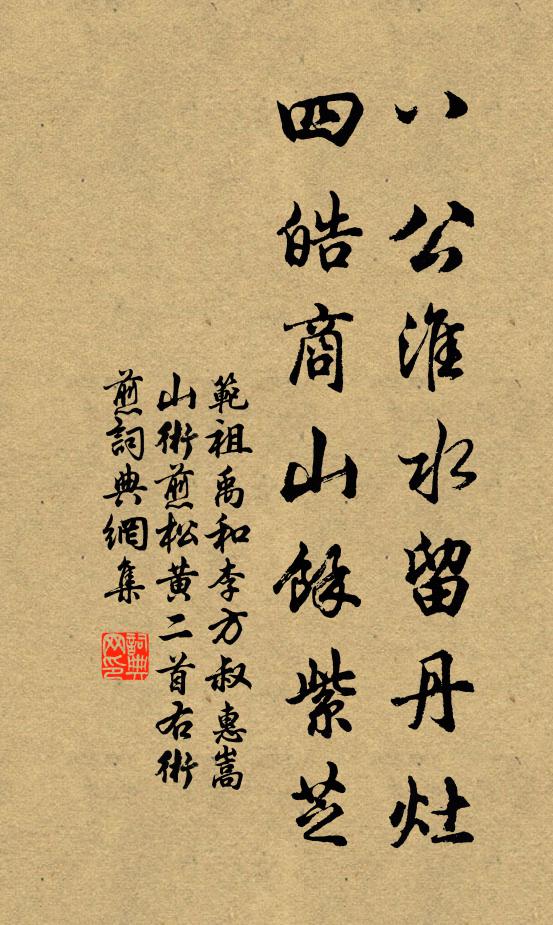 八公淮水留丹灶
四皓商山餘紫芝
範祖禹和李方叔惠嵩
山術煎松黄二首右術
煎詞典網集
詞典网印